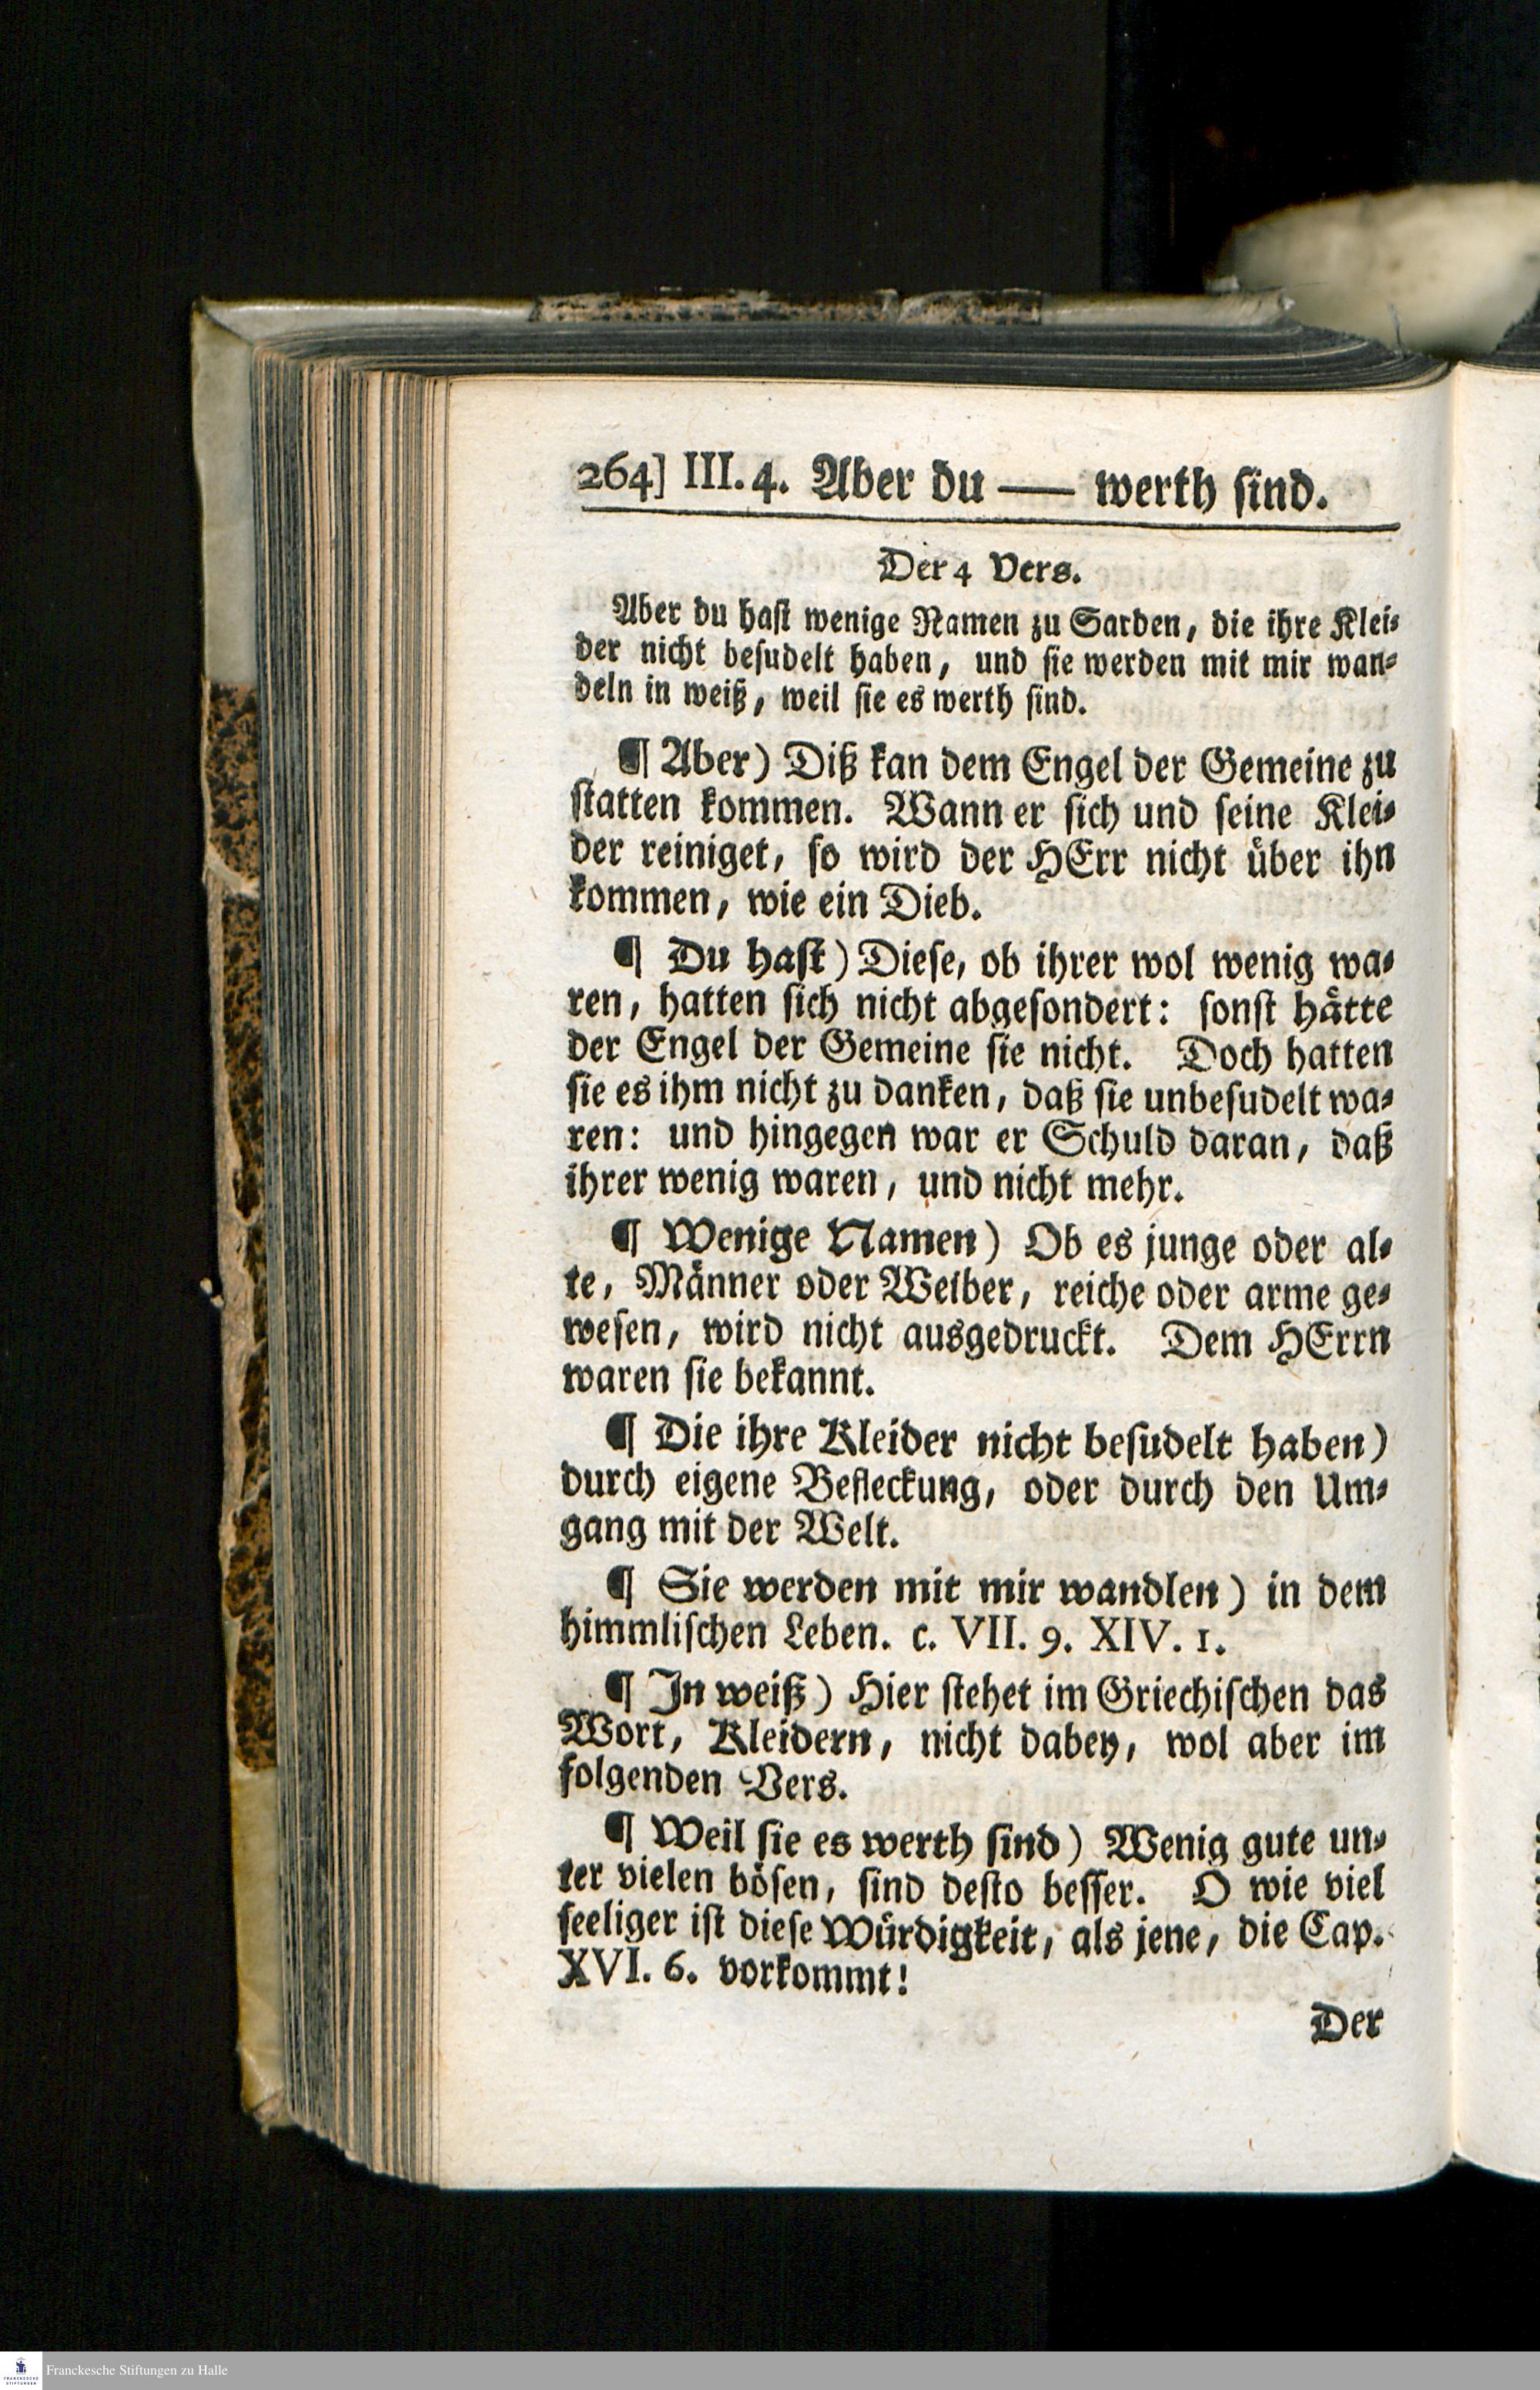 264] III. 4. Aber du — werth sind.
Der 4 Vers.
Aber du hast wenige Namen zu Sarden, die ihre Klei⸗
der nicht besudelt haben, und sie werden mit mir wan⸗
deln in weiß, weil sie es werth sind.
¶ Aber) Diß kan dem Engel der Gemeine zu
statten kommen. Wann er sich und seine Klei⸗
der reiniget, so wird der HErr nicht über ihn
kommen, wie ein Dieb.
¶ Du hast) Diese, ob ihrer wol wenig wa⸗
ren, hatten sich nicht abgesondert: sonst hätte
der Engel der Gemeine sie nicht. Doch hatten
sie es ihm nicht zu danken, daß sie unbesudelt wa⸗
ren: und hingegen war er Schuld daran, daß
ihrer wenig waren, und nicht mehr.
¶ Wenige Namen) Ob es junge oder al⸗
te, Männer oder Weiber, reiche oder arme ge⸗
wesen, wird nicht ausgedruckt. Dem HErrn
waren sie bekannt.
¶ Die ihre Kleider nicht besudelt haben)
durch eigene Befleckung, oder durch den Um⸗
gang mit der Welt.
¶ Sie werden mit mir wandlen) in dem
himmlischen Leben. c. VII. 9. XIV. 1.
¶ In weiß) Hier stehet im Griechischen das
Wort, Kleidern, nicht dabey, wol aber im
folgenden Vers.
¶ Weil sie es werth sind) Wenig gute un⸗
ter vielen bösen, sind desto besser. O wie viel
seeliger ist diese Würdigkeit, als jene, die Cap.
XVI. 6. vorkommt!
Der
FRANCKESCHE
STIFTUNGEN
Franckesche Stiftungen zu Halle